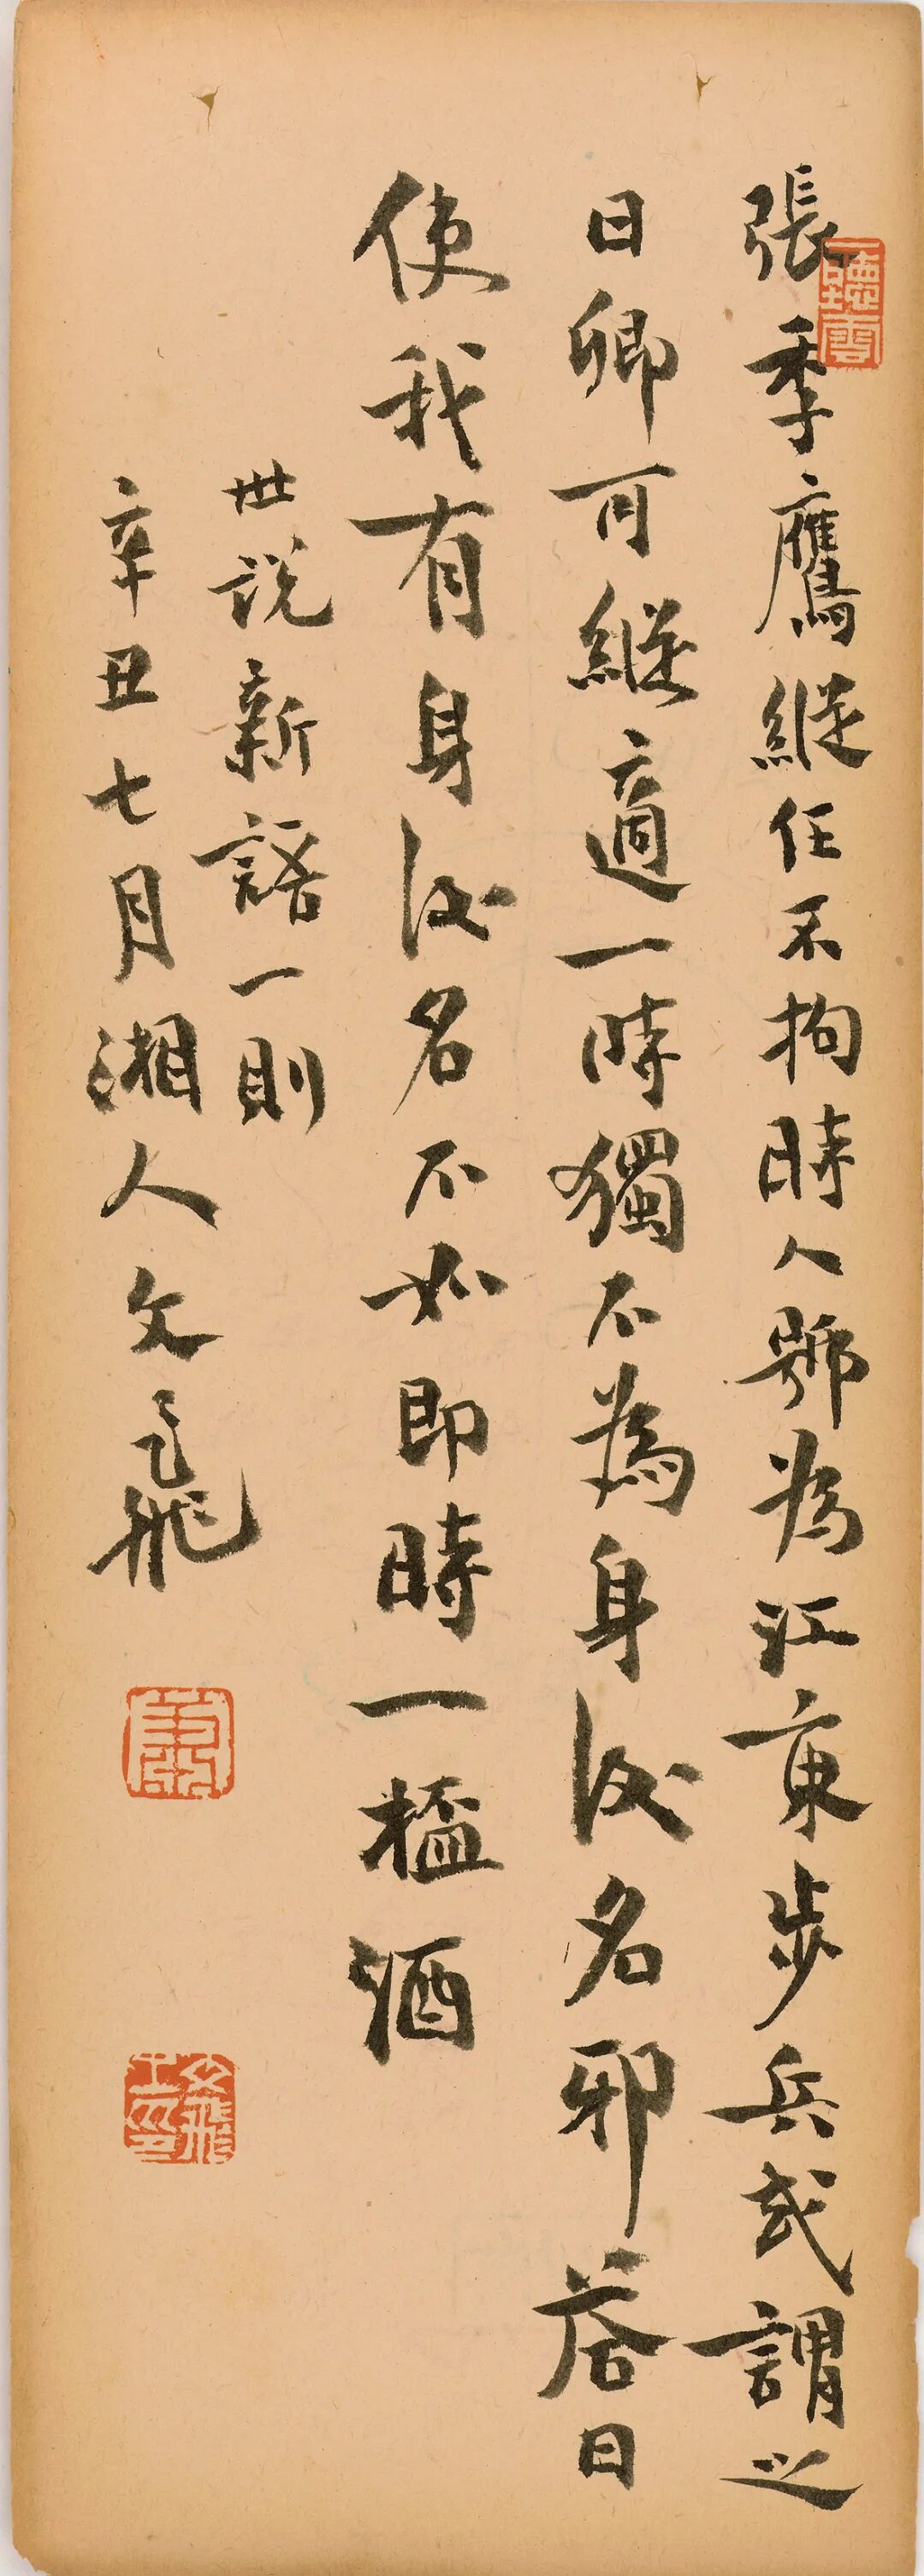 張季鷹縱任不拘時人號為江東步兵或謂之
曰卿可縱適一時獨不為身後名邪荅曰
使我有身後名不如即時一桮酒
世說新語一則
辛丑七月湘人文飛
聽雲